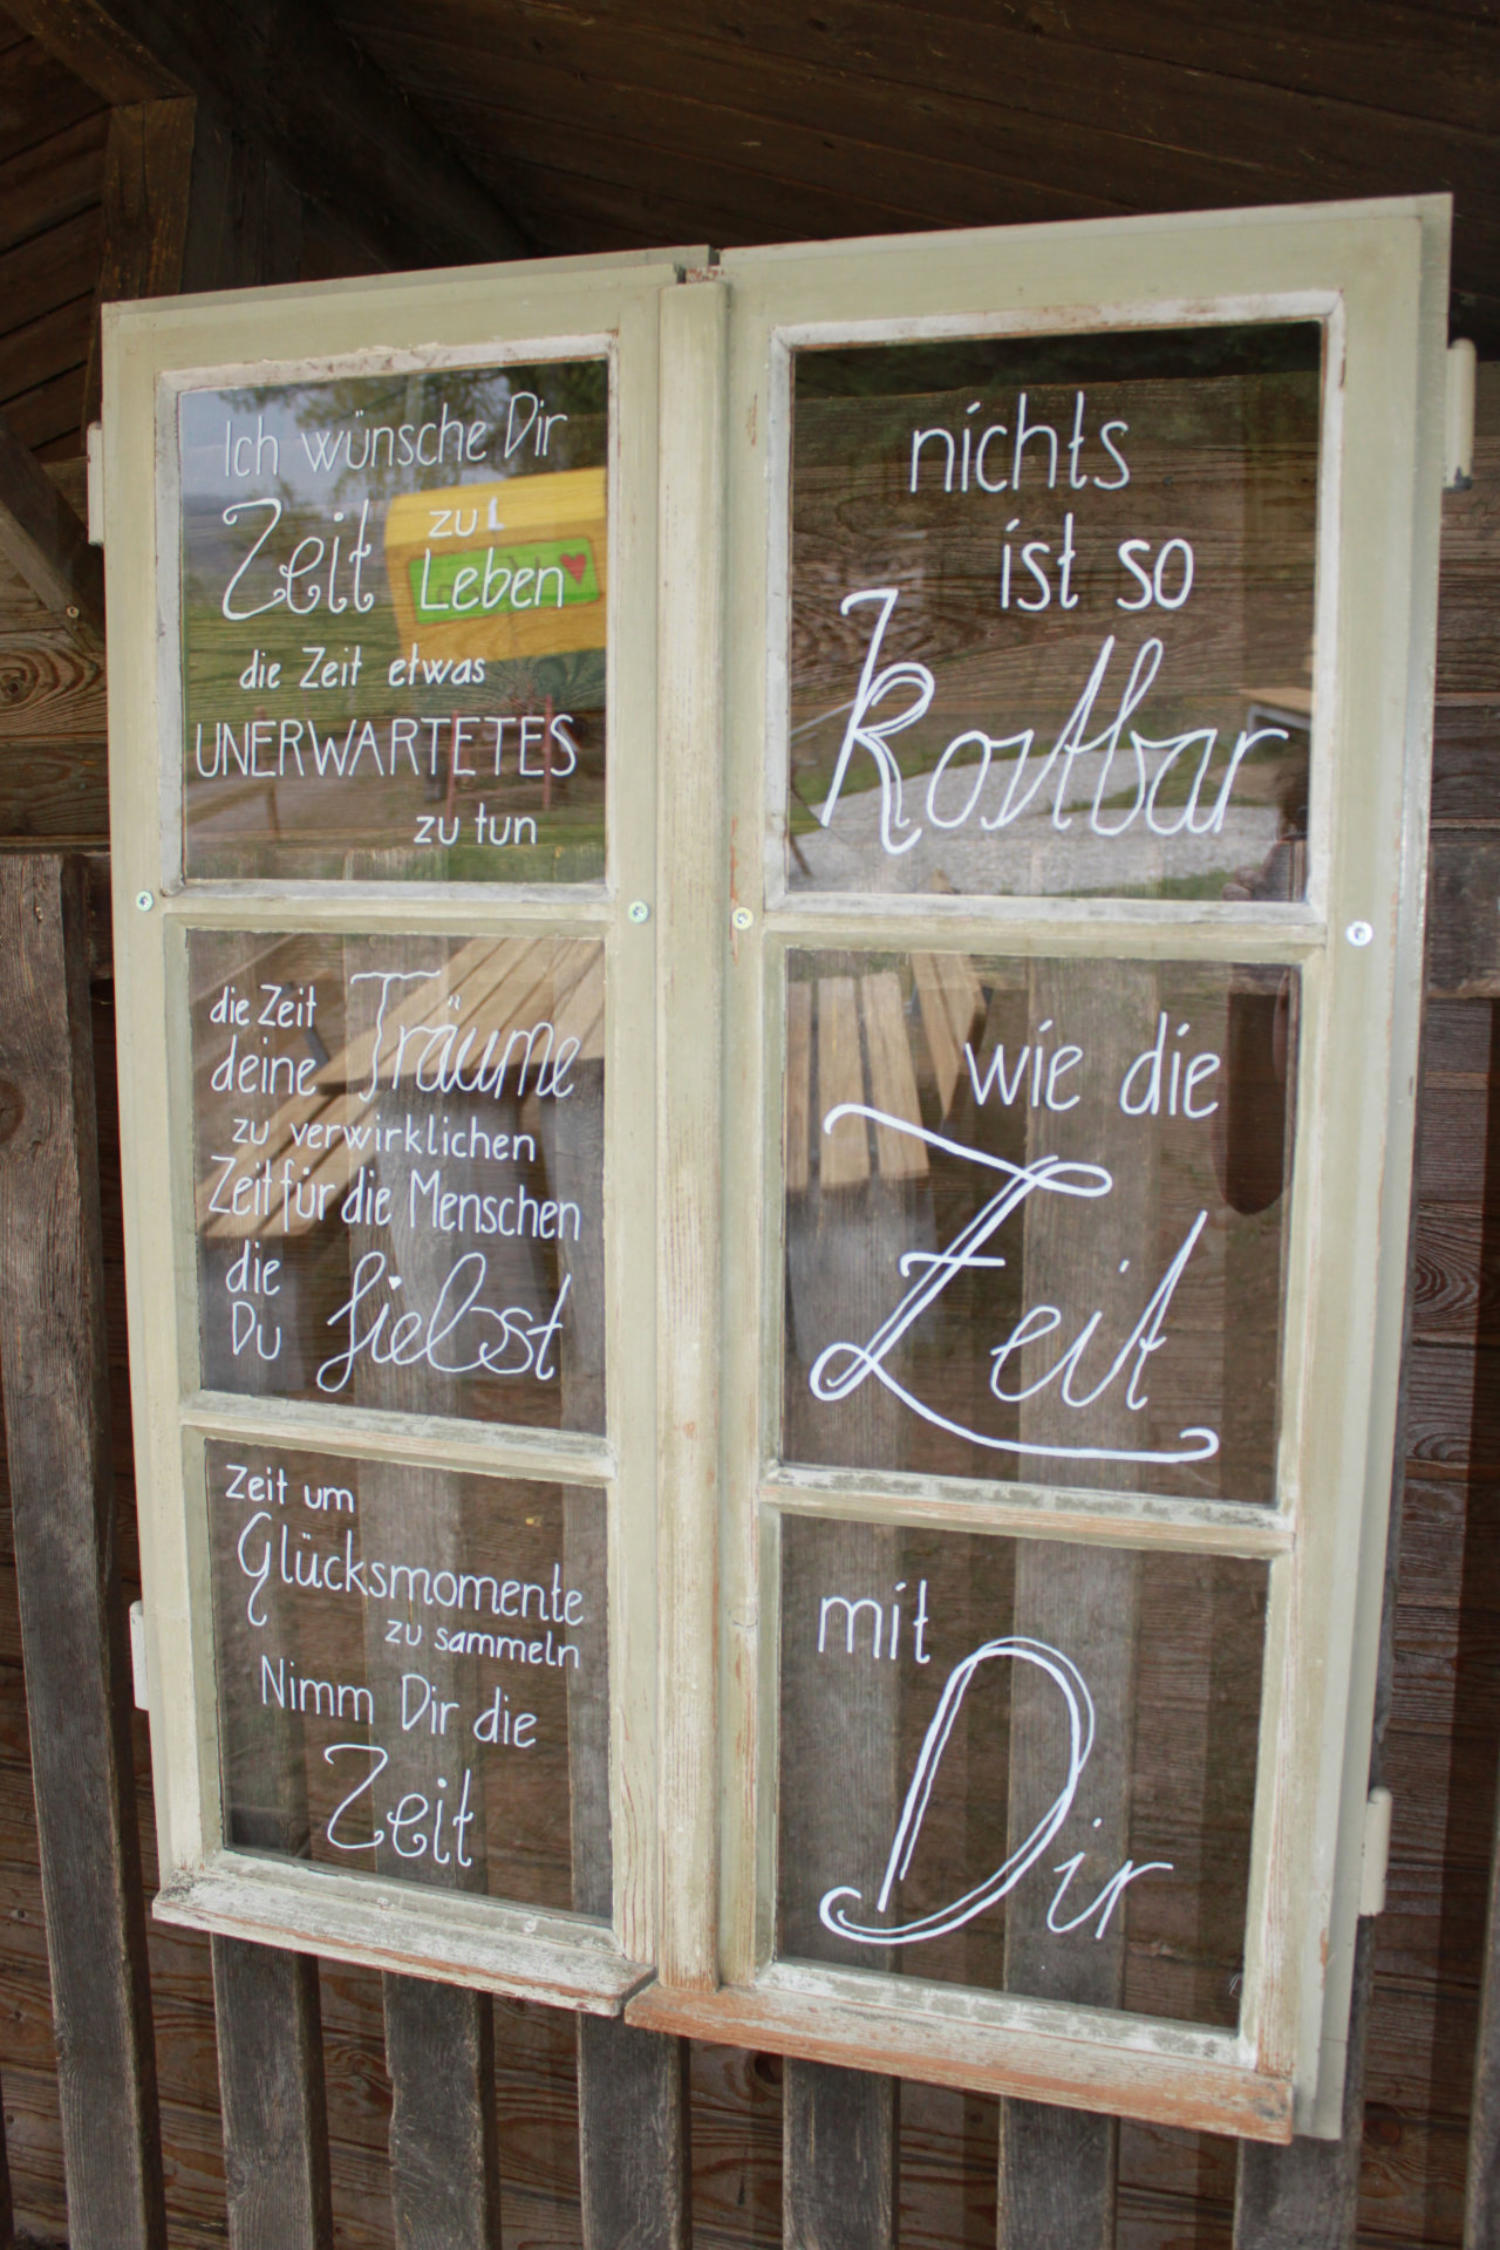 Ich wünsche Dir
Zeit zu
Leben
die Zeit etwas
UNERWARTETES
zu tun
die Zeit
deine Träume
zu verwirklichen
Zeit für die Menschen
die
Du liebst
Zeit um
Glücksmomente
zu sammeln
Nimm Dir die
Zeit
nichts
ist so
Kostbar
wie die
Zeit
mit
Dir